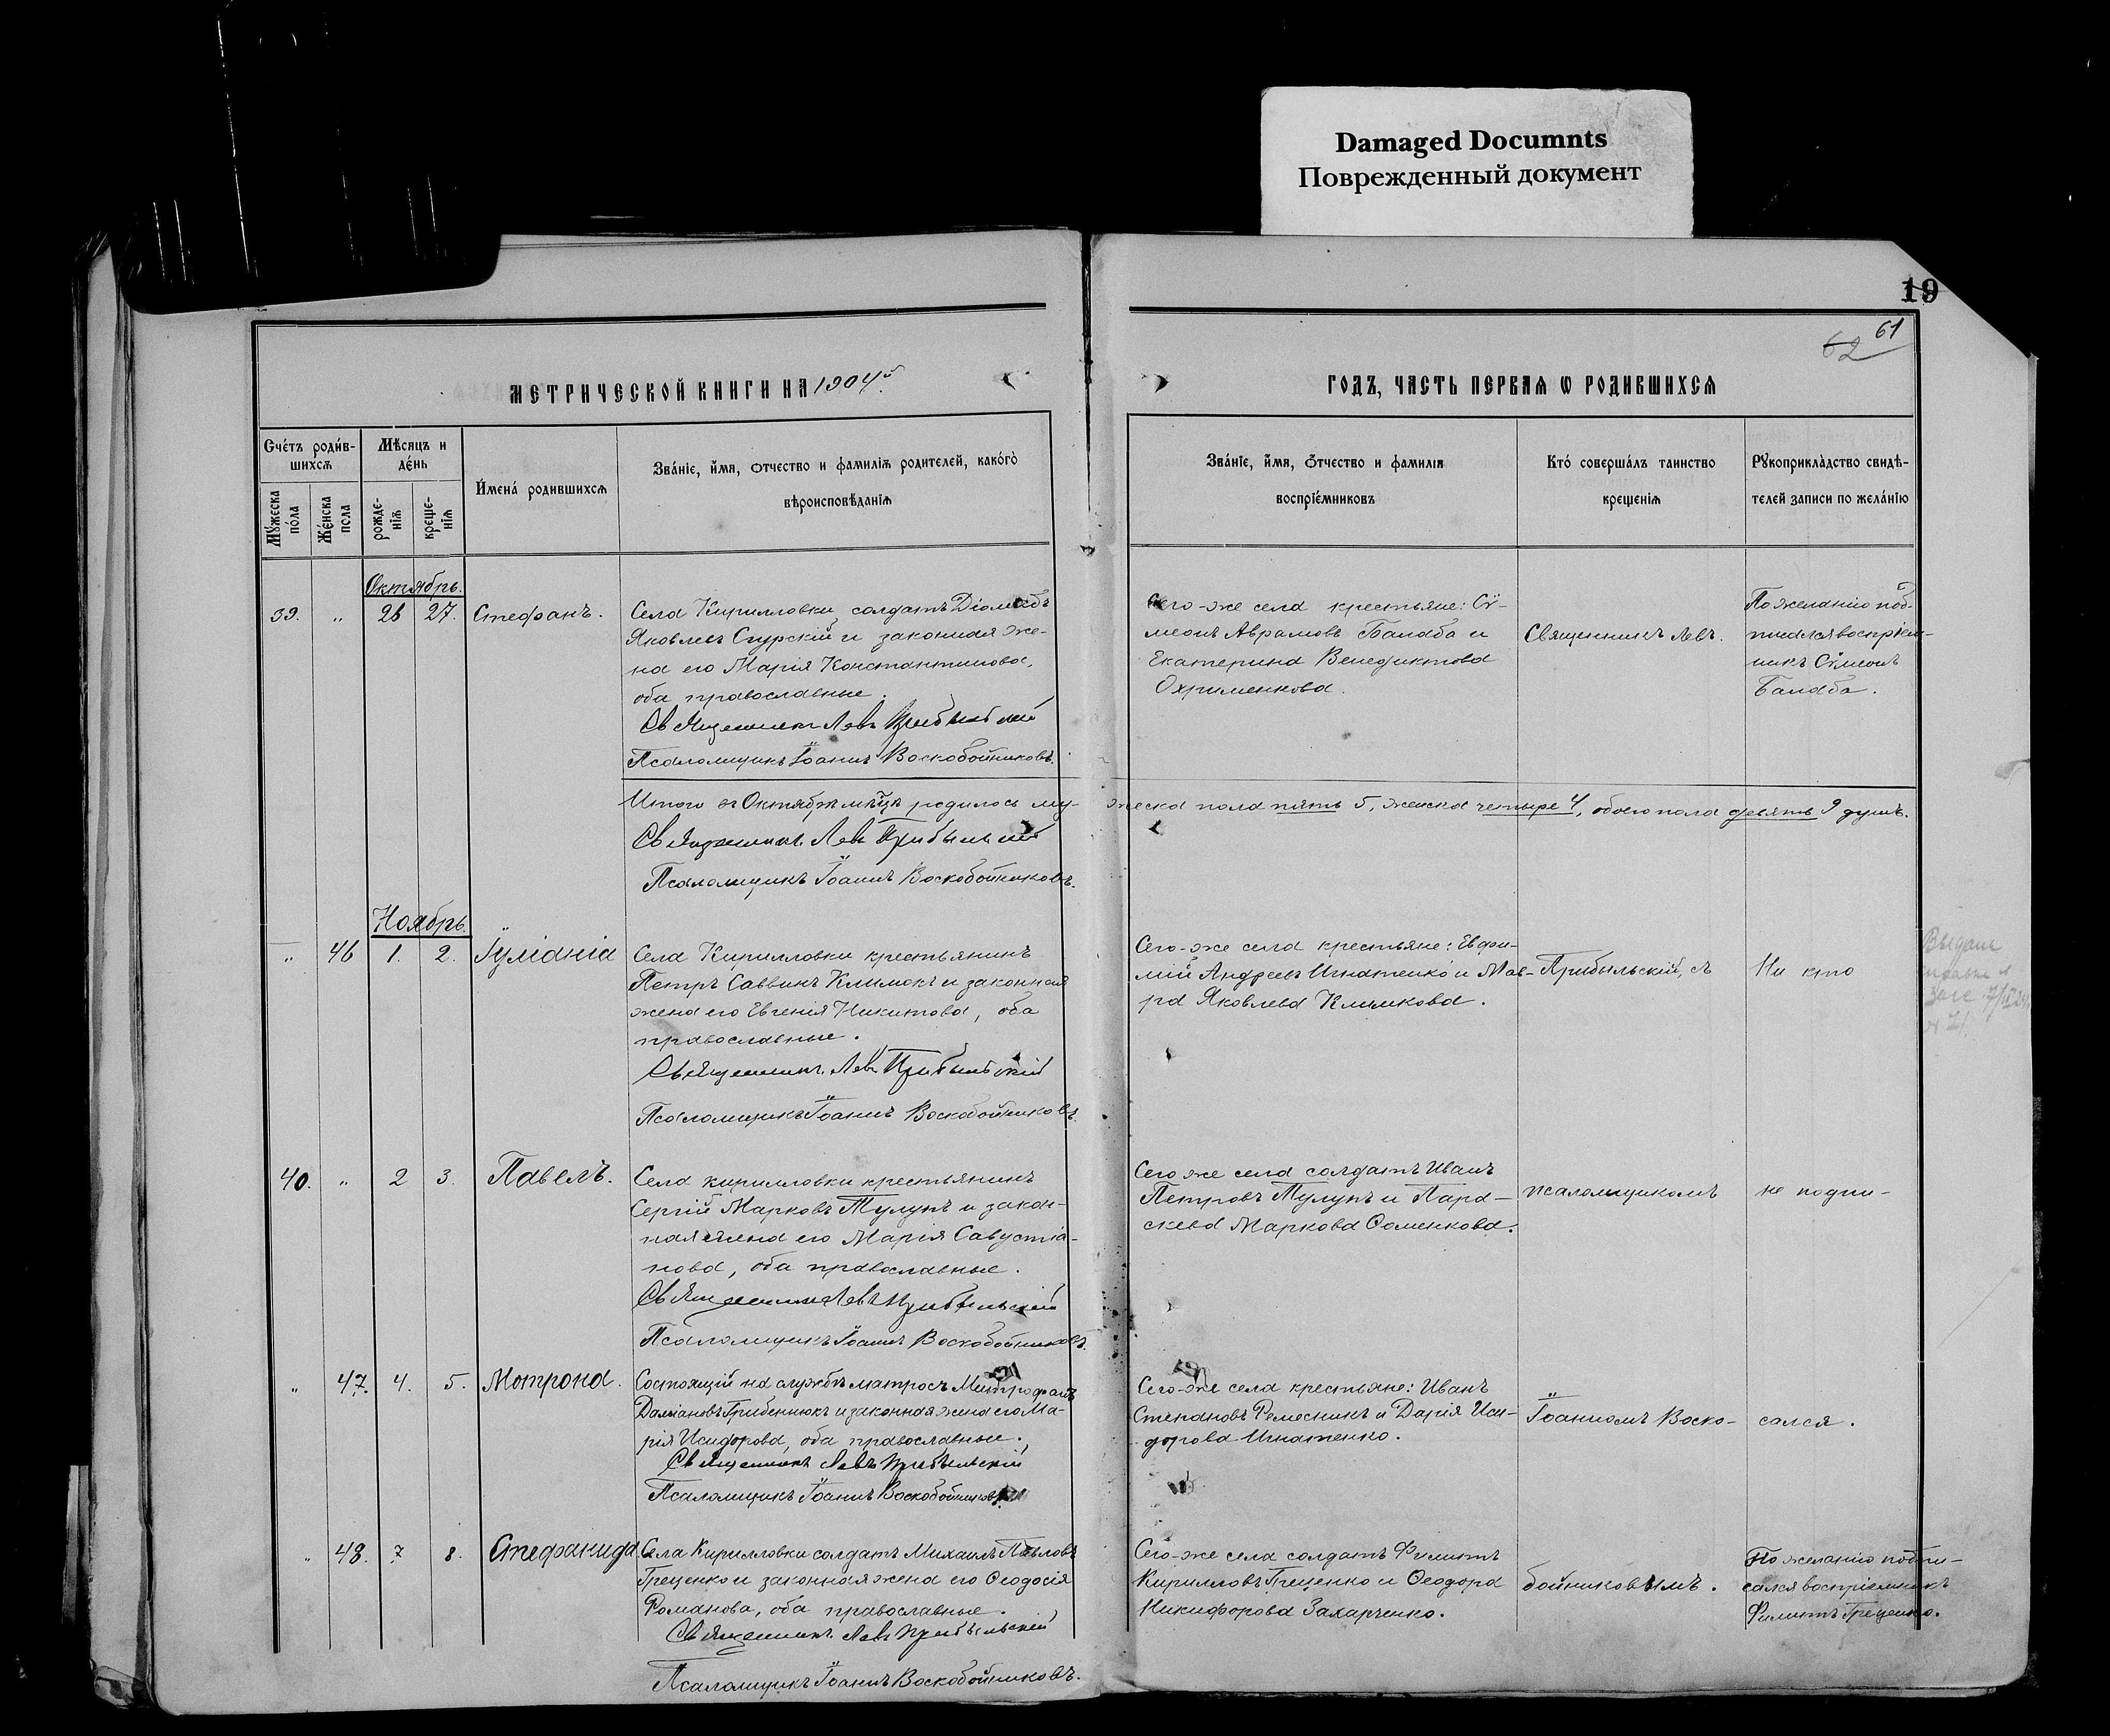 Damaged Documnts
Поврежденный документ
19
61
62
МЕТРИЧЕСКОЙ КНИГИ НА 1904й
ГОДЪ, ЧАСТЬ ПЕРВАЯ Ѡ РОДИВШИХСЯ
Счетъ родив-
шихся
Мѣсяцъ и
день
Мужеска
пола
Женска
пола
рожде-
нія
креще-
нія
Имена родившихся
Званіе, имя, отчество и фамилія родителей, какого
вѣроисповѣданія
Званіе, имя, отчество и фамилія
воспріемниковъ
Кто совершалъ таинство
крещенія
Рукоприкладство свидѣ-
телей записи по желанію
Октябрь.
39. " 26 27. Стефанъ.
Села Кирилловки солдатъ Діомидъ
Яковлевъ Спурскій и законная же-
на его Марія Константинова,
оба православные.
Священникъ Левъ Прибыльскій
Псаломщикъ Іоаннъ Воскобойниковъ.
Сего-же села крестьяне: Сѵ-
меонъ Аврамовъ Балаба и
Екатерина Венедиктова
Охрименкова.
Священникъ Левъ
По желанію под-
писался воспріем-
никъ Сѵмеонъ
Балаба.
Итого въ Октябрѣ мѣцѣ родилось му-
жеска пола пять 5, женска четыре 4, обоего пола девять 9 душъ.
Священникъ Левъ Прибыльскій
Псаломщикъ Іоаннъ Воскобойниковъ.
Ноябрь.
" 46 1. 2. Іуліанія
Села Кирилловки крестьянинъ
Петръ Саввинъ Климокъ и законная
жена его Евгенія Никитова, оба
православные.
Священникъ Левъ Прибыльскій
Псаломщикъ Іоаннъ Воскобойниковъ.
Сего-же села крестьяне: Евфи-
мій Андреевъ Игнатенко и Мав-
ра Яковлева Климкова.
Прибыльскій, съ
Ни кто
Выдана
40. " 2 3. Павелъ.
Села Кирилловки крестьянинъ
Сергій Марковъ Тулупъ и закон-
ная жена его Марія Савустіа-
нова, оба православные.
Священникъ Левъ Прибыльскій
Псаломщикъ Іоаннъ Воскобойниковъ.
Сего же села солдатъ Иванъ
Петровъ Тулупъ и Пара-
скева Маркова Соменкова.
псаломщикомъ
не подпи-
" 47. 4. 5. Мотрона.
Состоящій на службѣ матросъ Митрофанъ
Даміановъ Грибенюкъ и законная жена его Ма-
рія Исидорова, оба православные.
Священникъ Левъ Прибыльскій
Псаломщикъ Іоаннъ Воскобойниковъ.
Сего-же села крестьяне: Иванъ
Степановъ Ремесникъ и Дарія Иси-
дорова Игнатенко.
Іоанномъ Воско-
сался.
" 48. 7. 8. Стефанида
Села Кирилловки солдатъ Михаилъ Павловъ
Греценко и законная жена его Ѳеодосія
Романова, оба православные.
Священникъ Левъ Прибыльскій
Псаломщикъ Іоаннъ Воскобойниковъ.
Сего-же села солдатъ Филиппъ
Кирилловъ Греценко и Ѳеодора
Никифорова Захарченко.
бойниковымъ.
По желанію подпи-
сался воспріемникъ
Филиппъ Греценко.